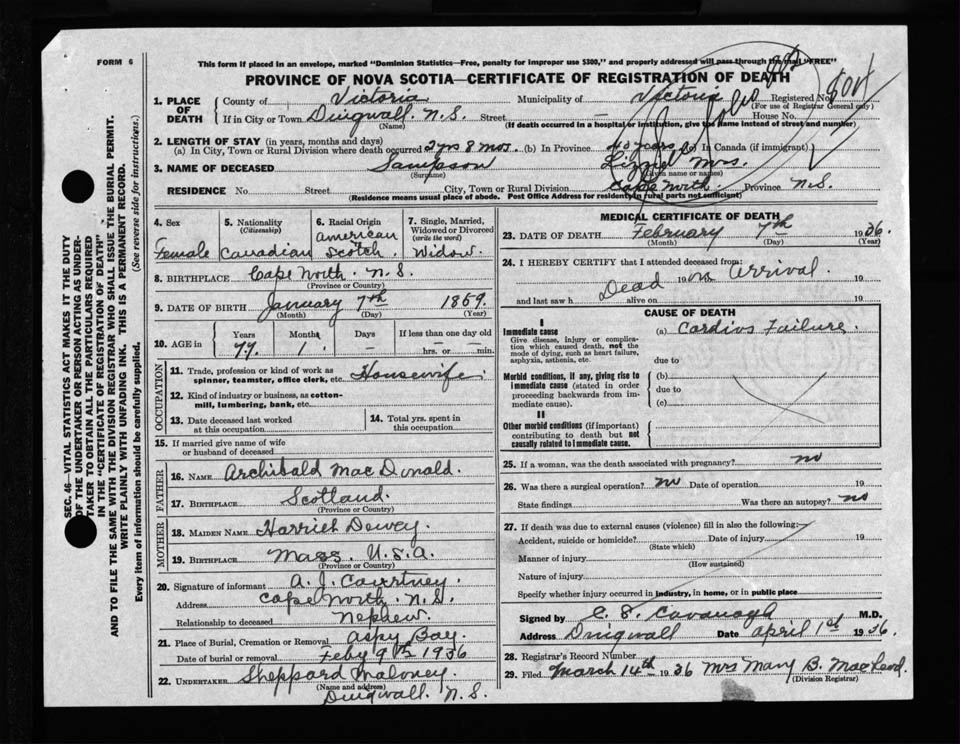 FORM 6
This form if placed in an envelope, marked "Dominion Statistics—Free, penalty for improper use $300," and properly addressed will pass through the mail "FREE"
PROVINCE OF NOVA SCOTIA—CERTIFICATE OF REGISTRATION OF DEATH
1. PLACE OF DEATH
County of Victoria Municipality of Victoria Registered No.
(For use of Registrar General only)
If in City or Town Dingwall. N.S. Street — House No.
(Name) (If death occurred in a hospital or institution, give the name instead of street and number)
2. LENGTH OF STAY (in years, months and days)
(a) In City, Town or Rural Division where death occurred 2 yrs 8 mos. (b) In Province years (c) In Canada (if immigrant)
3. NAME OF DECEASED Sampson Mrs.
(Surname) (Given name or names)
RESIDENCE No. Street City, Town or Rural Division Cape North. Province N.S.
(Residence means usual place of abode. Post Office Address for residents in rural parts not sufficient)
SEC. 46—VITAL STATISTICS ACT MAKES IT THE DUTY
OF THE UNDERTAKER OR PERSON ACTING AS UNDER-
TAKER TO OBTAIN ALL THE PARTICULARS REQUIRED
IN THE "CERTIFICATE OF REGISTRATION OF DEATH"
AND TO FILE THE SAME WITH THE DIVISION REGISTRAR WHO SHALL ISSUE THE BURIAL PERMIT.
WRITE PLAINLY WITH UNFADING INK. THIS IS A PERMANENT RECORD.
Every item of information should be carefully supplied. (See reverse side for instructions.)
4. Sex
Female
5. Nationality
(Citizenship)
Canadian
6. Racial Origin
American
Scotch
7. Single, Married,
Widowed or Divorced
(write the word)
Widow.
8. BIRTHPLACE Cape North. N.S.
(Province or Country)
9. DATE OF BIRTH January 7th 1859.
(Month) (Day) (Year)
10. AGE in
Years Months Days If less than one day old
77 1 hrs. or min.
OCCUPATION
11. Trade, profession or kind of work as
spinner, teamster, office clerk, etc. Housewife
12. Kind of industry or business, as cotton-
mill, lumbering, bank, etc.
13. Date deceased last worked
at this occupation
14. Total yrs. spent in
this occupation
15. If married give name of wife
or husband of deceased
FATHER
16. NAME Archibald MacDonald.
17. BIRTHPLACE Scotland.
(Province or Country)
MOTHER
18. MAIDEN NAME Harriet Dewey.
19. BIRTHPLACE Mass. U.S.A.
(Province or Country)
20. Signature of informant A. J. Courtney.
Address Cape North. N.S.
Relationship to deceased Nephew.
21. Place of Burial, Cremation or Removal Aspy Bay.
Date of burial or removal Feby 9th 1936
22. UNDERTAKER Sheppard Maloney.
(Name and address)
Dingwall. N.S.
MEDICAL CERTIFICATE OF DEATH
23. DATE OF DEATH February 7th 1936.
(Month) (Day) (Year)
24. I HEREBY CERTIFY that I attended deceased from:
Dead 19 on Arrival. 19
and last saw h alive on 19
CAUSE OF DEATH
I
Immediate cause
Give disease, injury or complica-
tion which caused death, not the
mode of dying, such as heart failure,
asphyxia, asthenia, etc.
(a) Cardias Failure.
due to
Morbid conditions, if any, giving rise to
immediate cause (stated in order
proceeding backwards from im-
mediate cause).
(b)
due to
(c)
II
Other morbid conditions (if important)
contributing to death but not
causally related to immediate cause.
25. If a woman, was the death associated with pregnancy? no
26. Was there a surgical operation? no Date of operation 19
State findings Was there an autopsy? no
27. If death was due to external causes (violence) fill in also the following:
Accident, suicide or homicide? Date of injury 19
(State which)
Manner of injury
(How sustained)
Nature of injury
Specify whether injury occurred in industry, in home, or in public place
Signed by C. S. Cavanagh M.D.
Address Dingwall Date April 1st 1936.
28. Registrar's Record Number
29. Filed March 14th 1936 Mrs Mary B. MacLeod.
(Division Registrar)